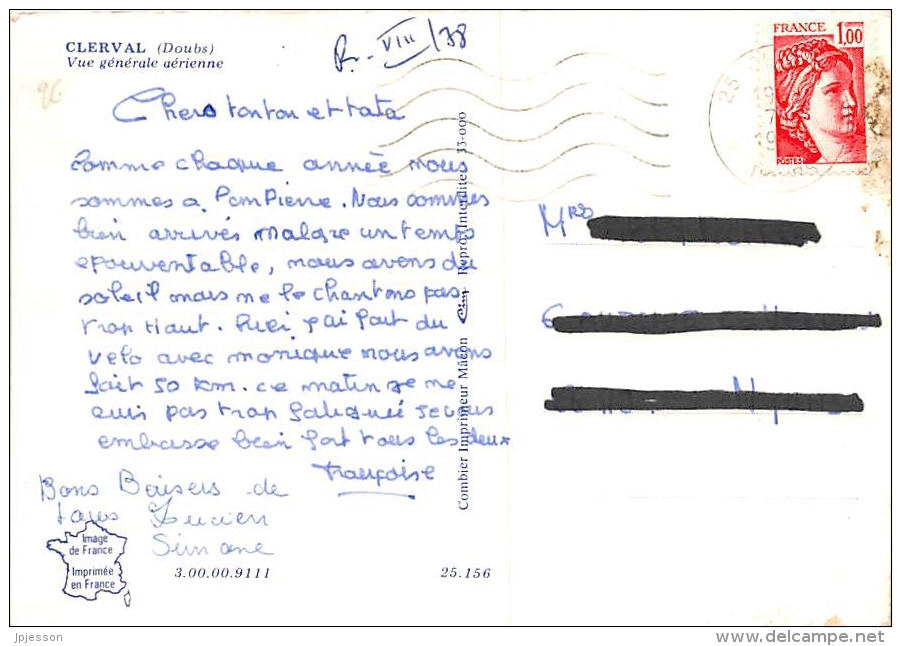 CLERVAL (Doubs)
Vue générale aérienne
R. VIII/78
FRANCE 1,00
POSTES
25
Chers tonton et tata
comme chaque année nous
sommes a PomPierre. Nous sommes
bien arrivés malgre un temps
epouventable, nous avons du
soleil mais ne le chantons pas
trop Haut. Hier j'ai fait du
velo avec monique nous avons
fait 50 km. ce matin je ne
suis pas trop fatiguée je vous
embrasse bien fort tous les deux
Françoise
Bons Baisers de
tous Lucien
Simone
Image
de France
Imprimée
en France
3.00.00.9111
25.156
Combier Imprimeur Mâcon Cim Repro. Interdites 33-000
Mrs
jpjesson
www.delcampe.net